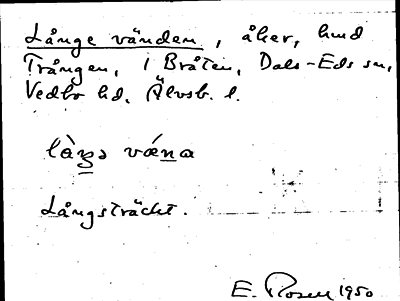 Långe vänden, åker, hmd
Trången, i Bråten, Dals-Eds sn,
Vedbo hd. Älvsb. l.
Långsträckt.
E. Rosen 1950